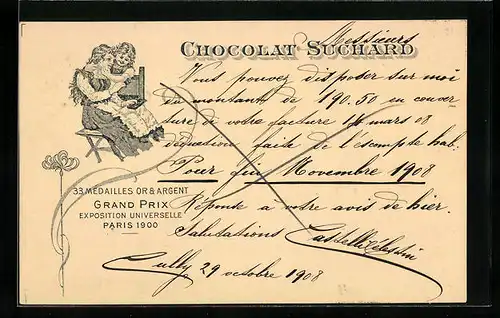 Messieurs
CHOCOLAT SUCHARD
Vous pouvez disposer sur moi
du montant de 190.50 en couver-
ture de votre facture 16 mars 08
déduction faite de l'escompte hab.
Pour fin Novembre 1908
Réponse à votre avis de hier.
Salutations
Cully 29 octobre 1908
33 MÉDAILLES OR & ARGENT
GRAND PRIX
EXPOSITION UNIVERSELLE
PARIS 1900